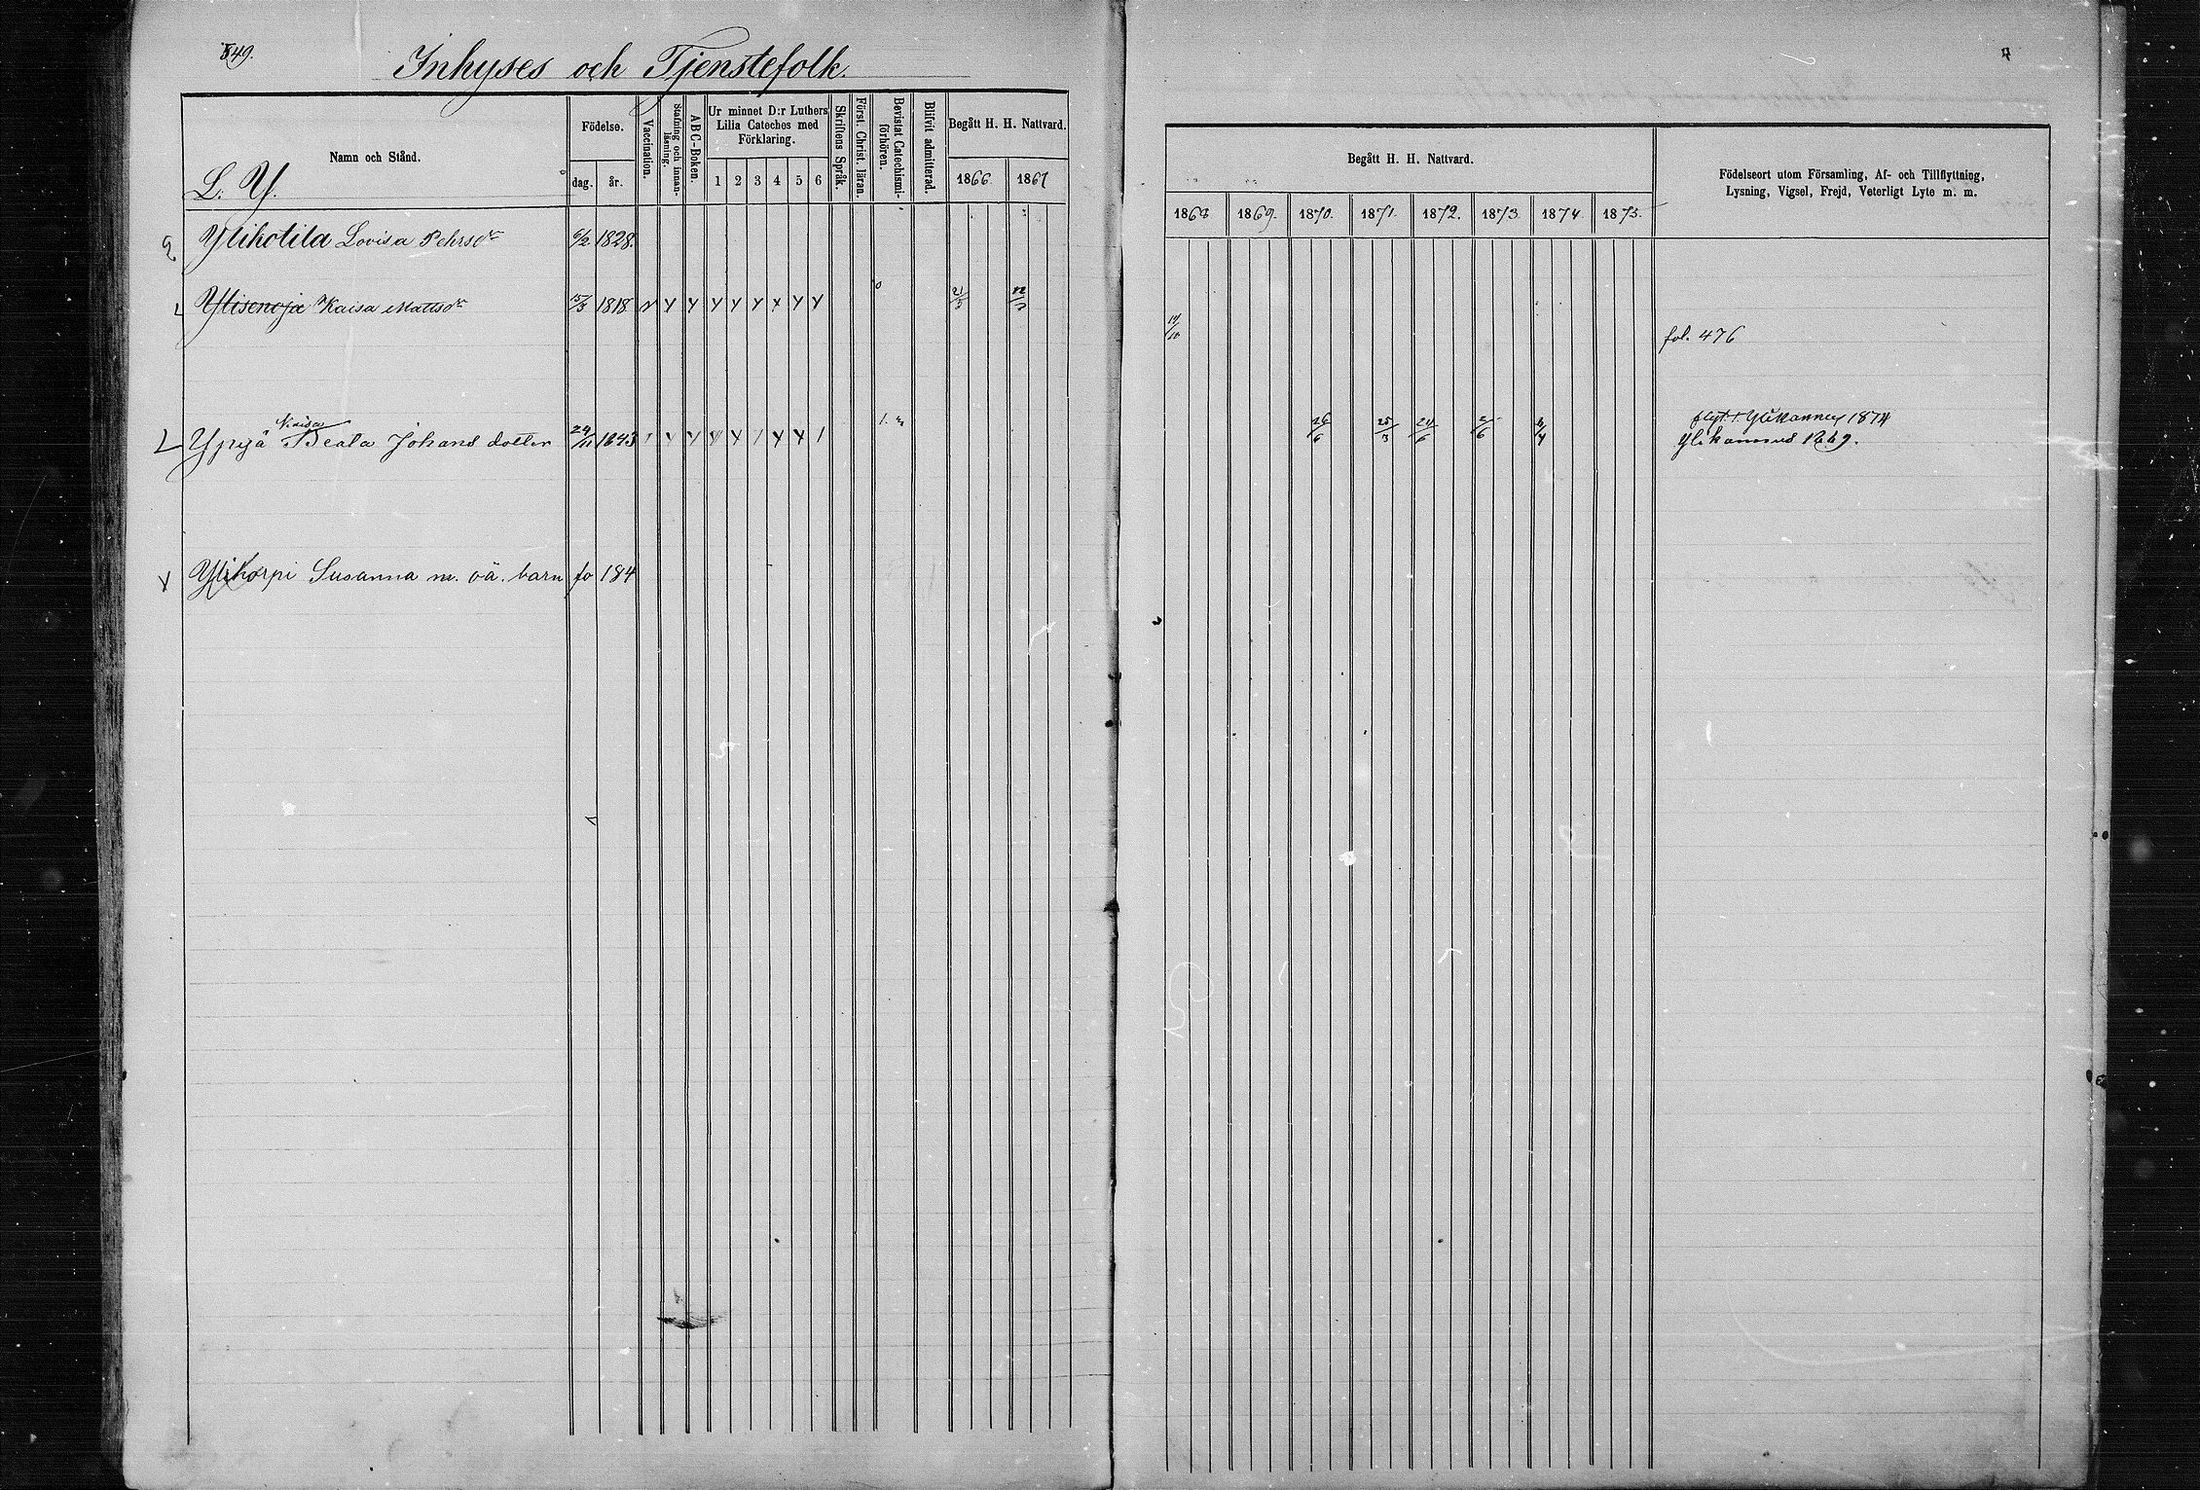 849.
Inhyses och Tjenstefolk.
Namn och Stånd.
L. Y.
Födelse.
dag. år.
Vaccination.
Stafning och innan-läsning.
ABC-Boken.
Ur minnet D:r Luthers
Lilla Cateches med
Förklaring.
1 2 3 4 5 6
Skriftens Språk.
Först. Christ. läran.
Bevistat Catechismi-förhören.
Blifvit admitterad.
Begått H. H. Nattvard.
1866 1867
Ylikotila Lovisa Pehrsdr 6/2 1828.
Ylisenoja Kaisa Mattsdr 15/3 1818 21/5
Ypyä Beata Johans dotter 24/11 1843
Ylikorpi Susanna m. oä. barn fo 184
Begått H. H. Nattvard.
1868 1869. 1870. 1871. 1872. 1873 1874. 1875.
Födelseort utom Församling, Af- och Tillflyttning,
Lysning, Vigsel, Frejd, Veterligt Lyte m. m.
fol. 476
26/6 25/3 24/6 2/6 flyt. t. Ylikannus 1874
Ylikannus 1869.